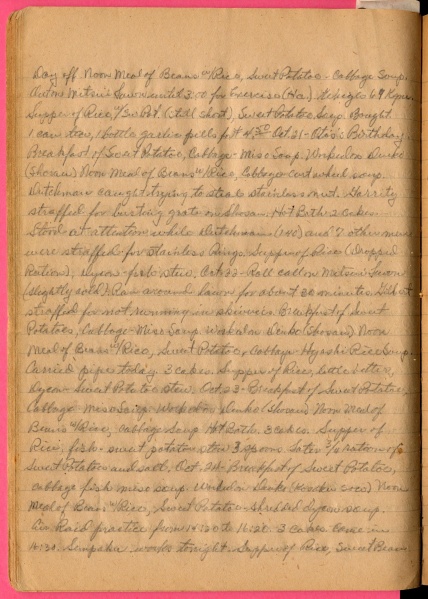 Day off Noon Meal of Beans w/Rice, Sweet Potatoe - Cabbage Soup.
on Mitsui Lawn until 3:00 for Exercise (Ha). Weight 69 Kilos.
Supper of Rice, (still short), Sweet Potatoe Soup. Bought
1 can stew, 1 bottle garlic pills for Oct. 21 - Birthday.
Breakfast of Sweet Potatoe, Cabbage - Miso Soup. Worked on Denko
(Showa) Noon Meal of Beans w/Rice, Cabbage cartwheel soup.
Dutchman caught trying to steal stainless nut. Garrity
straffed for busting grate on Shosen. Hot Bath. 2 cakes.
Stood at attention while Dutchman (140) and 7 other men
were straffed for Stainless Rings. Supper of Rice (Dropped
Rations), Dycon - fish stew. Oct 22 - Roll call on Mitsui Lawn
(slightly cold) Ran around lawn for about 20 minutes.
straffed for not running in skivvies. Breakfast of Sweet
Potatoes, Cabbage - Miso Soup. Worked on Denko (Showa) Noon
Meal of Beans w/Rice, Sweet Potatoe, Cabbage - Hyashi Rice Soup.
Carried pipes today. 3 cakes. Supper of Rice, little better,
Dycon - Sweet Potatoe stew. Oct 23 - Breakfast of Sweet Potatoe,
Cabbage - Meso Soup. Worked on Denko (Showa) Noon Meal of
Beans w/Rice, Cabbage Soup Hot Bath. 3 cakes. Supper of
Rice, fish - sweet potatoe stew 3 spoons. Later ration of
Sweet Potatoe and salt. Oct. 24 - Breakfast of Sweet Potatoe,
cabbage fish miso soup. Worked on Denko Noon
Meal of Beans w/Rice, Sweet Potatoe - Shredded Dycon soup.
Air Raid practice from to 3 cakes came in
14:30. Sempaku works tonight. Supper of Rice, Sweet Bean